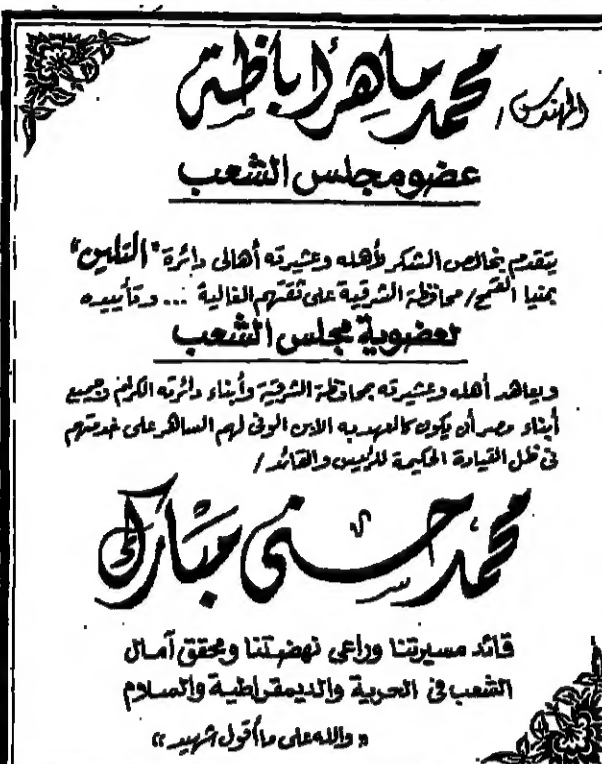 المهندس/
محمد ماهر أباظة
عضو مجلس الشعب
يتقدم بخالص الشكر لأهله وعشيرته أهالى دائرة "التلين"
بمنيا القمح/محافظة الشرقية على ثقتهم الغالية ... وتأييده
لعضوية مجلس الشعب
ويعاهد أهله وعشيرته بمحافظة الشرقية وأبناء دائرته الكرام وجميع
أبناء مصر أن يكون كالعهد به الابن الوفى لهم الساهر على خدمتهم
فى ظل القيادة الحكيمة للرئيس والقائد/
محمد حسنى مبارك
قائد مسيرتنا وراعى نهضتنا ومحقق آمال
الشعب فى الحرية والديمقراطية والسلام
« والله على ما أقول شهيد »